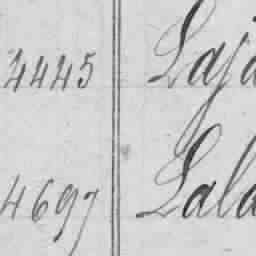 4445 Laja
4697 Lala